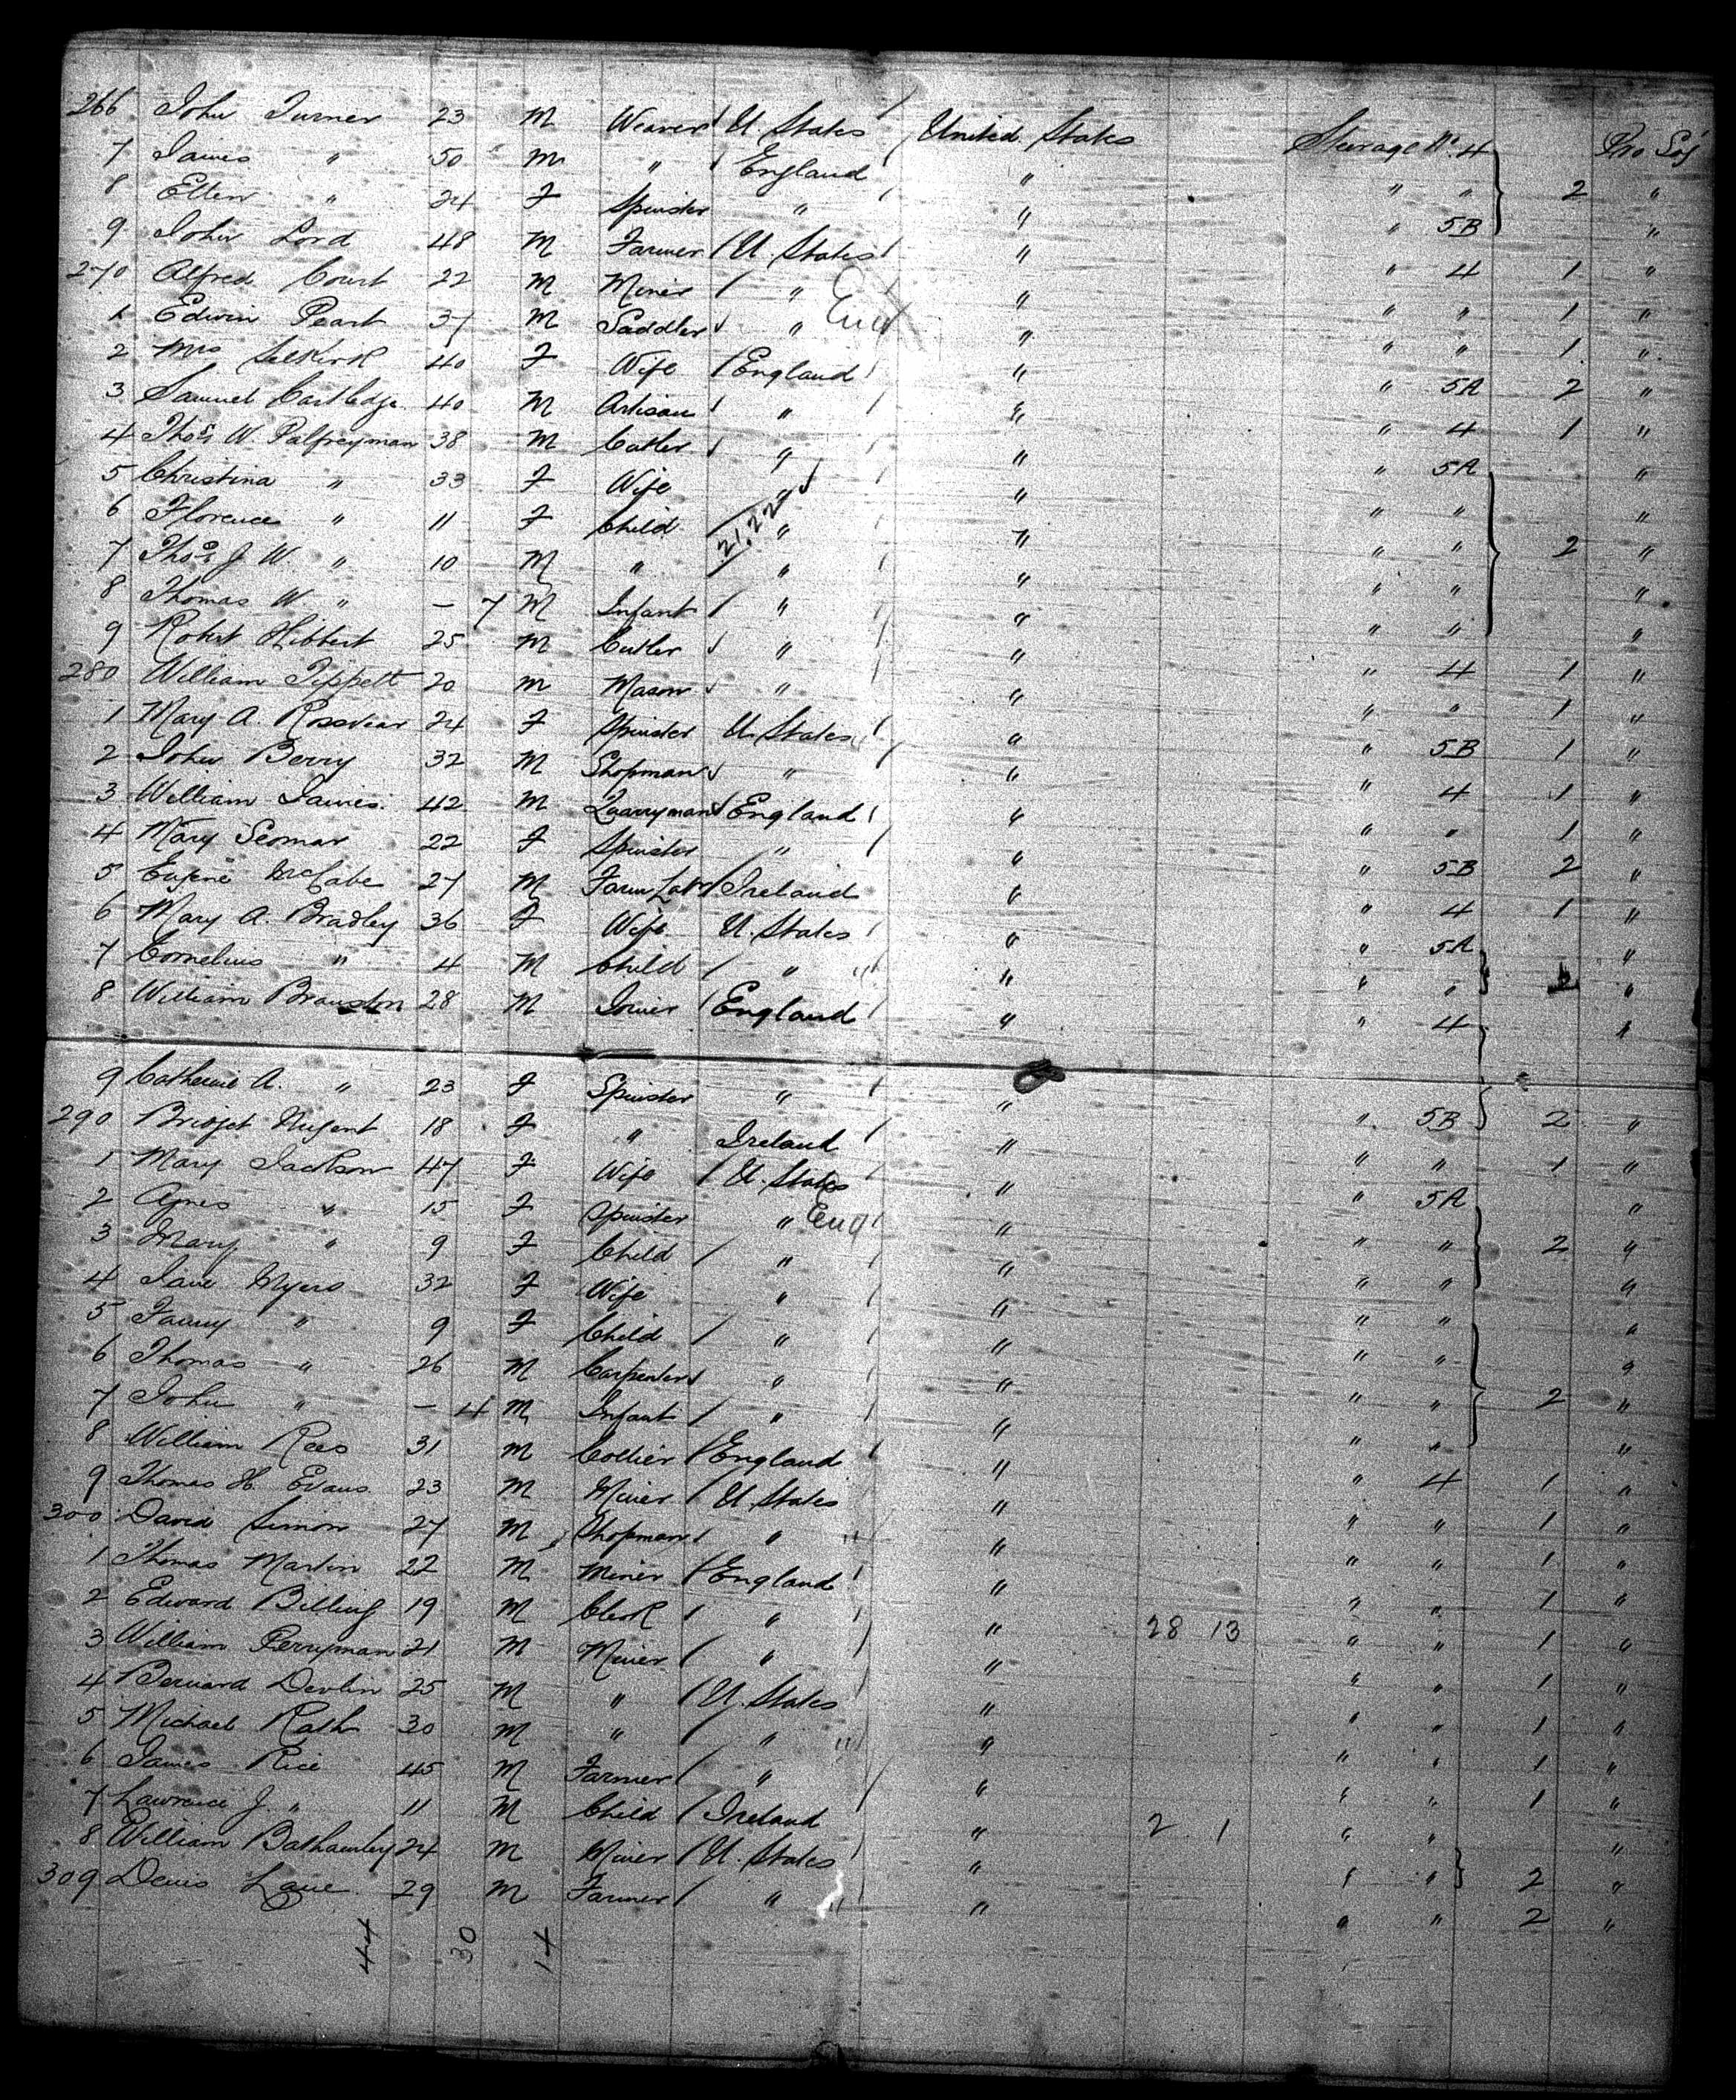 266 John Turner 23 M Weaver U. States United States Steerage No. 4 Pro Soj
7 James " 50 M " England " " " 2 "
8 Ellen " 24 F Spinster " " " 5B "
9 John Lord 48 M Farmer U. States " " 4 1 "
270 Alfred Court 22 M Miner " " " " 1 "
1 Edwin Peart 37 M Saddler " Eng " " " 1 "
2 Mrs Selkirk 40 F Wife England " " 5A 2 "
3 Samuel Cartledge 40 M Artisan " " " 4 1 "
4 Thos W. Palfreyman 38 M Cutler " " " 5A "
5 Christina " 33 F Wife " " " " "
6 Florence " 11 F Child 21.22 " " " " 2 "
7 Thos J. W. " 10 M " " " " " "
8 Thomas W. " – 7 M Infant " " " " "
9 Robert Hibbert 25 M Cutler " " " 4 1 "
280 William Tippett 20 M Mason " " " " 1 "
1 Mary A. 24 F Spinster U. States " " 5B 1 "
2 John Berry 32 M Shopman " " " 4 1 "
3 William James 42 M Quarryman England " " " 1 "
4 Mary Seomar 22 F Spinster " " " 5B 2 "
5 Eugene McCabe 27 M Farm Labr Ireland " " 4 1 "
6 Mary A. Bradley 36 F Wife U. States " " 5A "
7 Cornelius " 4 M Child " " " " 2 "
8 William Branston 28 M Joiner England " " 4 "
9 Catherine A. " 23 F Spinster " " " 5B 2 "
290 Bridget Nugent 18 F " Ireland " " " 1 "
1 Mary Jackson 47 F Wife U. States " " 5A "
2 Agnes " 15 F Spinster " Eng " " " 2 "
3 Mary " 9 F Child " " " " "
4 Jane Myers 32 F Wife " " " " "
5 Fanny " 9 F Child " " " " "
6 Thomas " 26 M Carpenter " " " " 2 "
7 John " – 4 M Infant " " " " "
8 William Rees 31 M Collier England " " 4 1 "
9 Thomas H. Evans 23 M Miner U. States " " " 1 "
300 David Simon 27 M Shopman " " " " 1 "
1 Thomas Martin 22 M Miner England " " " 1 "
2 Edward Billing 19 M Clerk " " 28 13 " " 1 "
3 William Perryman 21 M Miner " " " " 1 "
4 Bernard Devlin 25 M " U. States " " " 1 "
5 Michael Rath 30 M " " " " " 1 "
6 James Rice 45 M Farmer " " " " 1 "
7 Lawrence J. " 11 M Child Ireland " 2 1 " " "
8 William 24 M Miner U. States " " " 2 "
309 Denis Lane 29 M Farmer " " " " 2 "
44 30 14